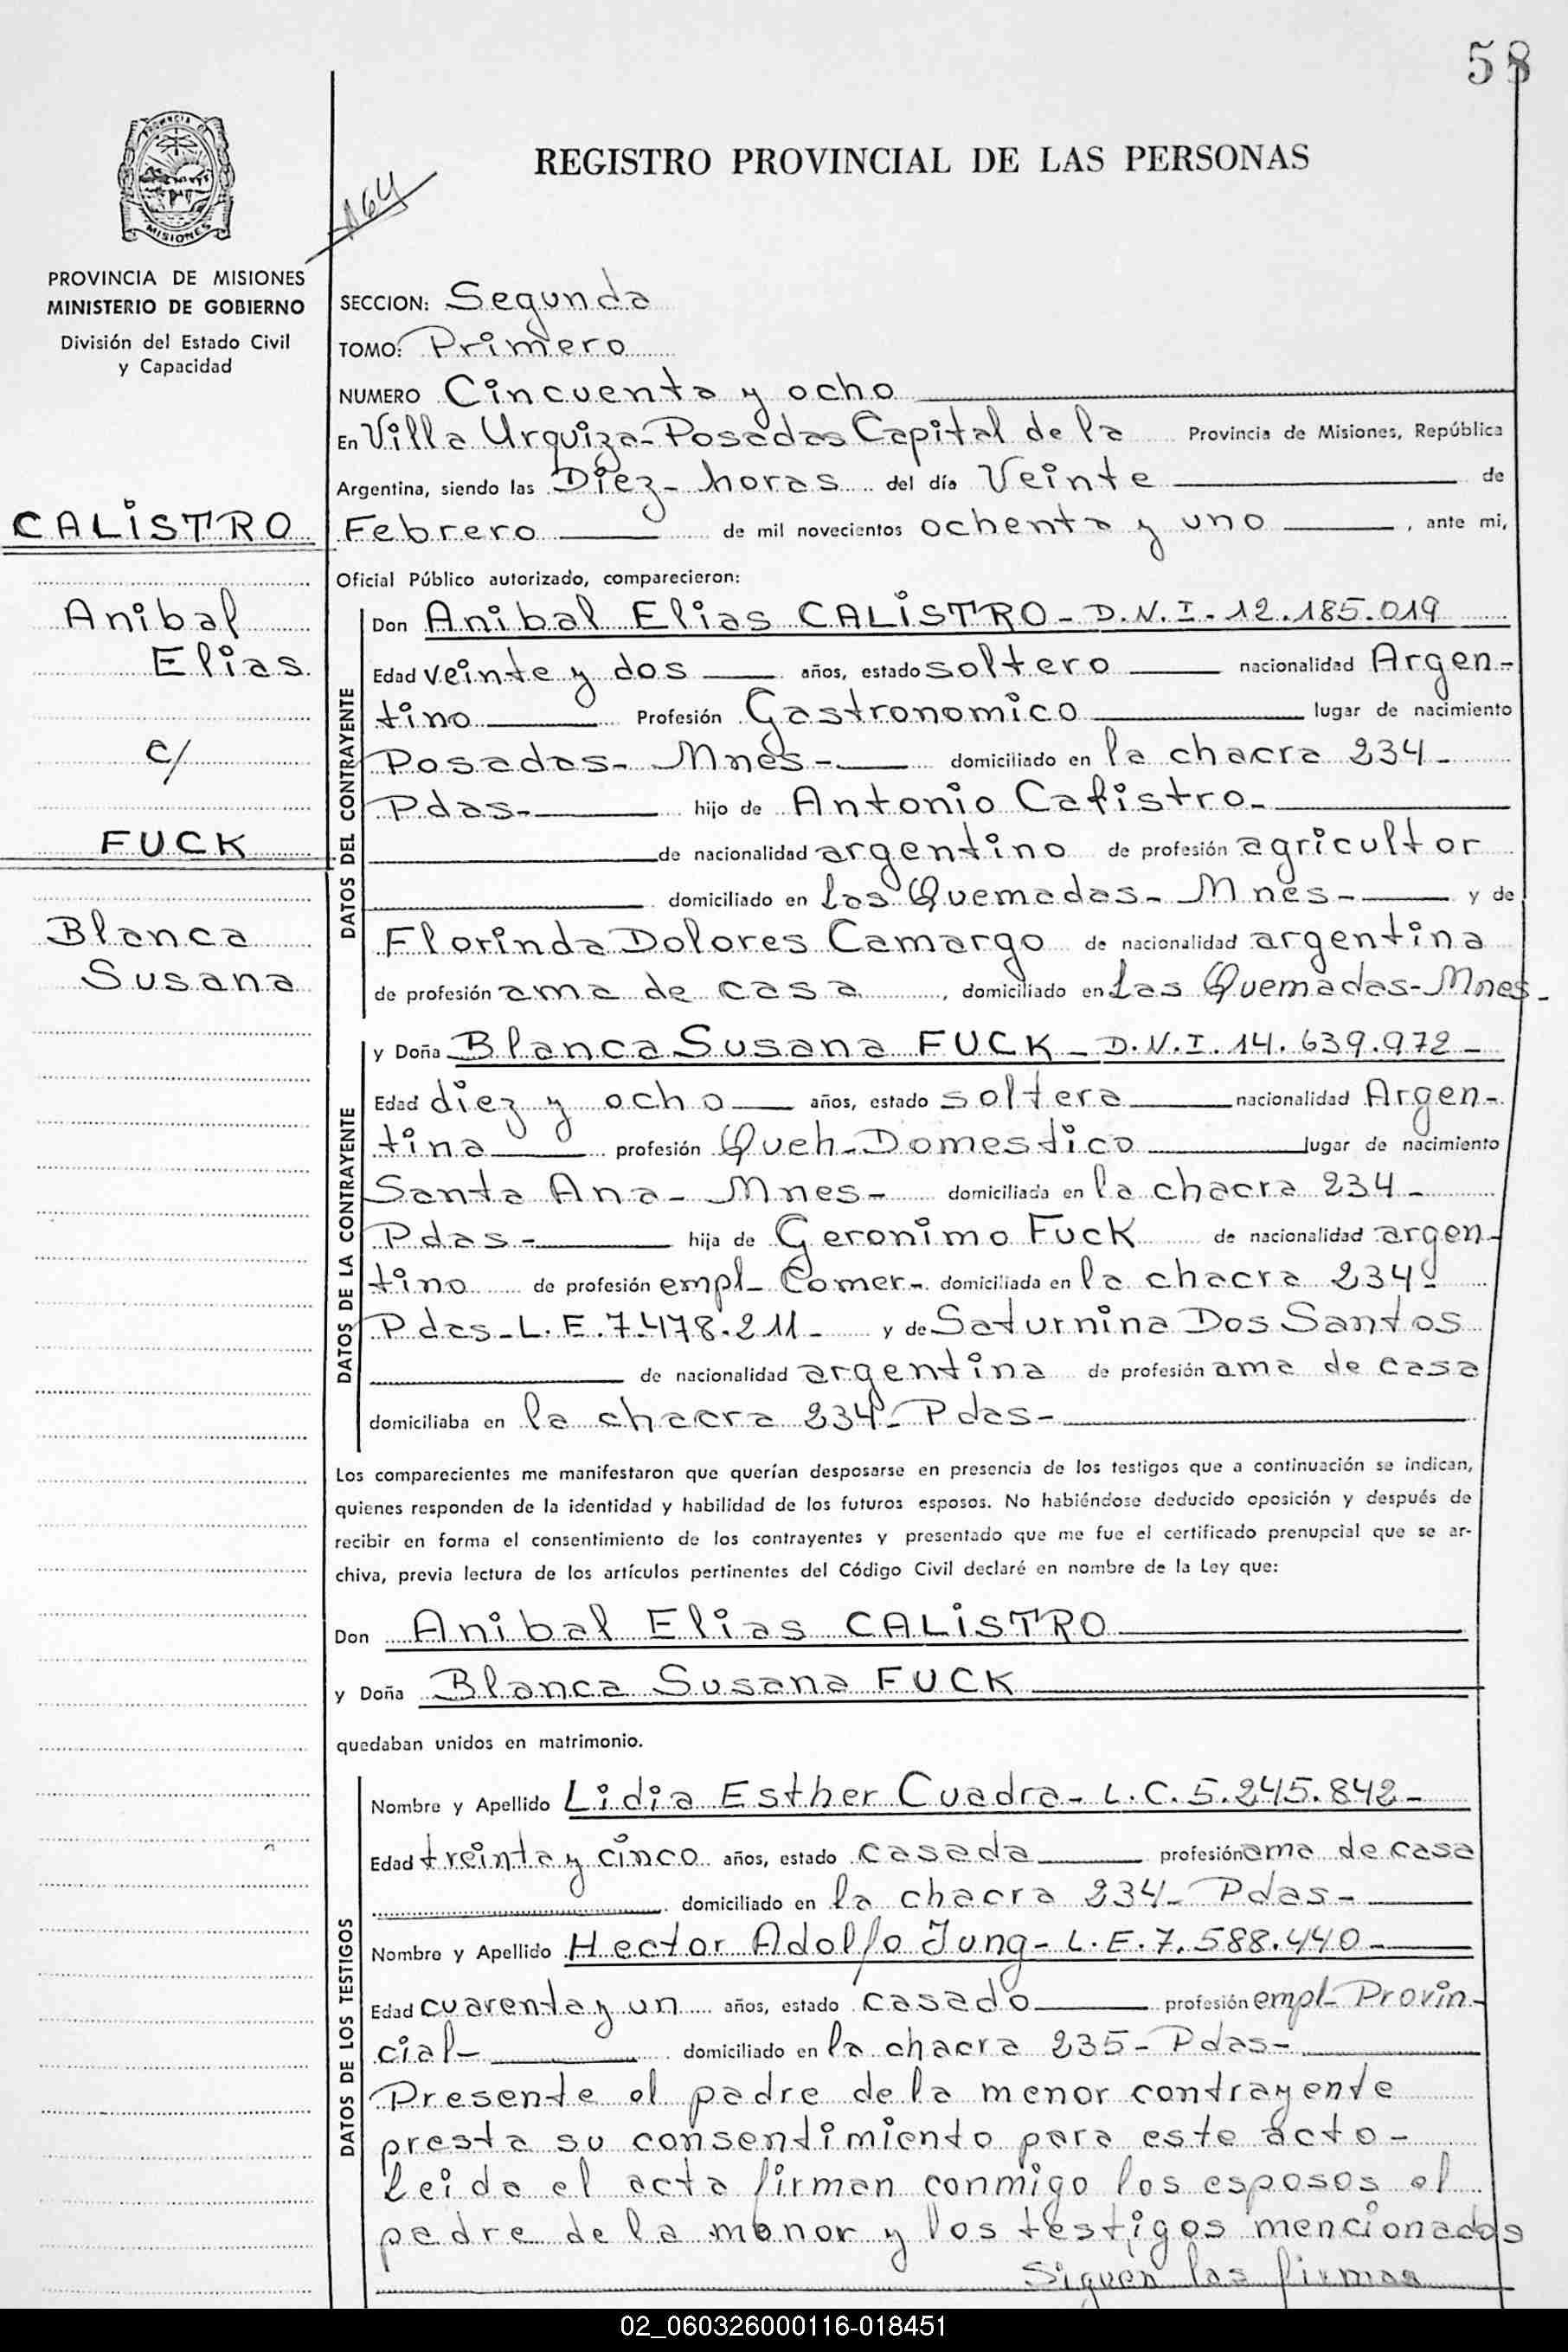 58
REGISTRO PROVINCIAL DE LAS PERSONAS
PROVINCIA DE MISIONES
MINISTERIO DE GOBIERNO
División del Estado Civil
y Capacidad
CALISTRO
Anibal
Elias
c/
FUCK
Blanca
Susana
SECCION: Segunda
TOMO: Primero
NUMERO Cincuenta y ocho
En Villa Urquiza - Posadas Capital de la Provincia de Misiones, República
Argentina, siendo las Diez - horas del día Veinte de
Febrero de mil novecientos ochenta y uno , ante mi,
Oficial Público autorizado, comparecieron:
DATOS DEL CONTRAYENTE
Don Anibal Elias CALISTRO - D.N.I - 12.185.019
Edad veinte y dos años, estado soltero nacionalidad Argen-
tino Profesión Gastronomico lugar de nacimiento
Posadas - Mnes - domiciliado en la chacra 234 -
Pdas - hijo de Antonio Calistro -
de nacionalidad argentino de profesión agricultor
domiciliado en las Quemadas - Mnes - y de
Florinda Dolores Camargo de nacionalidad argentina
de profesión ama de casa , domiciliado en Las Quemadas - Mnes -
DATOS DE LA CONTRAYENTE
y Doña Blanca Susana FUCK - D.N.I. 14.639.972 -
Edad diez y ocho años, estado soltera nacionalidad Argen-
tina profesión Queh - Domestico lugar de nacimiento
Santa Ana - Mnes - domiciliada en la chacra 234 -
Pdas - hija de Geronimo Fuck de nacionalidad argen-
tino de profesión empl - Comer - domiciliada en la chacra 234
Pdas - L.E. 7.478.211 - y de Saturnina Dos Santos
de nacionalidad argentina de profesión ama de casa
domiciliaba en la chacra 234 - Pdas -
Los comparecientes me manifestaron que querían desposarse en presencia de los testigos que a continuación se indican,
quienes responden de la identidad y habilidad de los futuros esposos. No habiéndose deducido oposición y después de
recibir en forma el consentimiento de los contrayentes y presentado que me fue el certificado prenupcial que se ar-
chiva, previa lectura de los artículos pertinentes del Código Civil declaré en nombre de la Ley que:
Don Anibal Elias CALISTRO
y Doña Blanca Susana FUCK
quedaban unidos en matrimonio.
DATOS DE LOS TESTIGOS
Nombre y Apellido Lidia Esther Cuadra - L.C. 5.245.842 -
Edad treinta y cinco años, estado casada profesión ama de casa
domiciliado en la chacra 234 - Pdas -
Nombre y Apellido Hector Adolfo Jung - L.E. 7.588.440 -
Edad cuarenta y un años, estado casado profesión empl - Provin-
cial - domiciliado en la chacra 235 - Pdas -
Presente el padre de la menor contrayente
presta su consentimiento para este acto -
Leida el acta firman conmigo los esposos el
padre de la menor y los testigos mencionados
Siguen las firmas
02_060326000116-018451